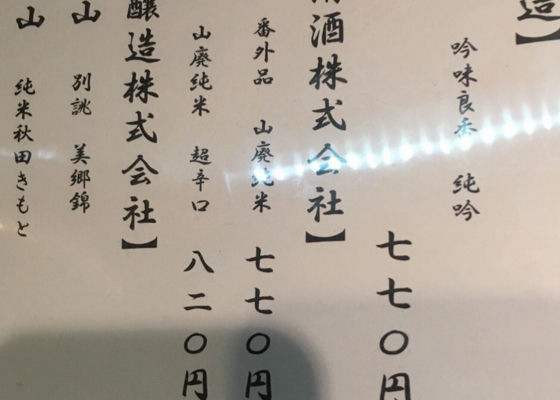 造】
吟味良香 純吟
七七〇円
酒株式会社】
番外品 山廃純米
七七〇円
山廃純米 超辛口
八二〇円
醸造株式会社】
山 別誂 美郷錦
山 純米秋田きもと